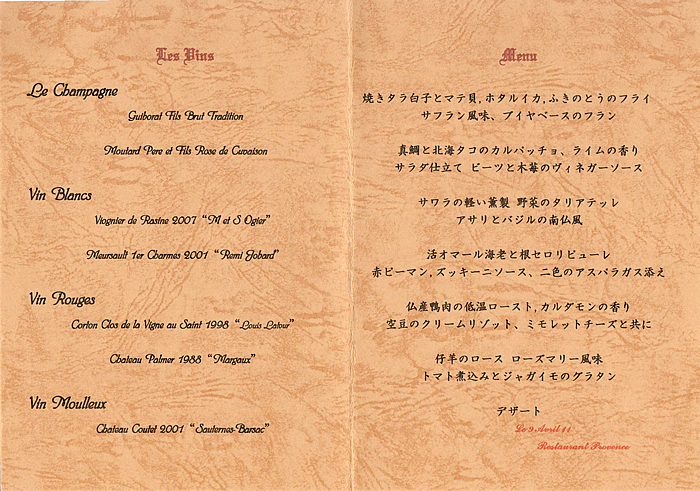 Les Vins
Le Champagne
Guiborat Fils Brut Tradition
Moutard Pere et Fils Rose de Cuvaison
Vin Blancs
Viognier de Rasine 2007 “M et S Ogier”
Meursault 1er Charmes 2001 “Remi Jobard”
Vin Rouges
Corton Clos de la Vigne au Saint 1998 “Louis Latour”
Chateau Palmer 1988 “Margaux”
Vin Moulleux
Chateau Coutet 2001 “Sauternes-Barsac”
Menu
焼きタラ白子とマテ貝,ホタルイカ,ふきのとうのフライ
サフラン風味、ブイヤベースのフラン
真鯛と北海タコのカルパッチョ、ライムの香り
サラダ仕立て ビーツと木苺のヴィネガーソース
サワラの軽い薫製 野菜のタリアテッレ
アサリとバジルの南仏風
活オマール海老と根セロリピューレ
赤ピーマン,ズッキーニソース、二色のアスパラガス添え
仏産鴨肉の低温ロースト,カルダモンの香り
空豆のクリームリゾット、ミモレットチーズと共に
仔羊のロース ローズマリー風味
トマト煮込みとジャガイモのグラタン
デザート
Le 9 Avril 11
Restaurant Provence